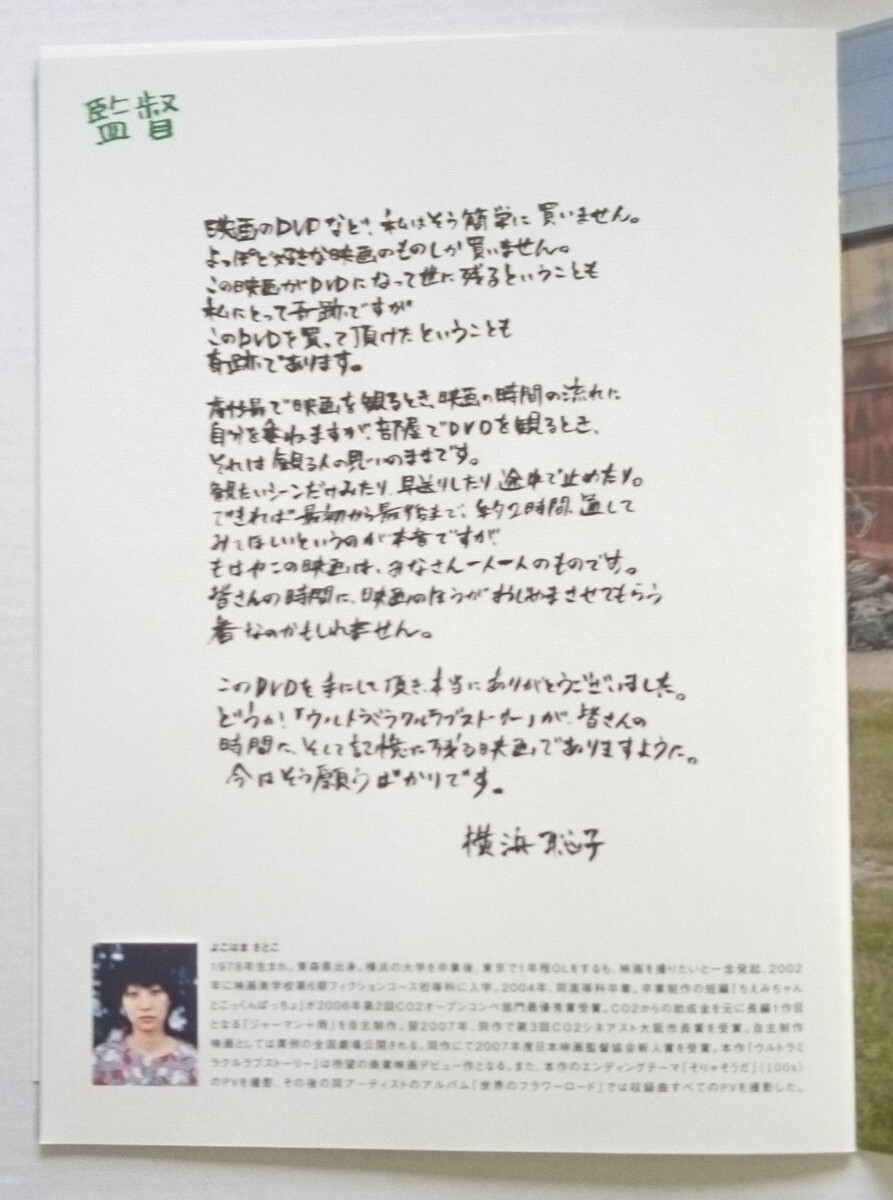 監督
映画のDVDなど、私はそう簡単に買いません。
よっぽど好きな映画のものしか買いません。
この映画がDVDになって世に残るということも
私にとって奇跡ですが
このDVDを買って頂けたということも
奇跡であります。
劇場で映画を観るとき、映画の時間の流れに
自分を委ねますが、部屋でDVDを観るとき、
それは観る人の思いのままです。
観たいシーンだけみたり、早送りしたり、途中で止めたり。
できれば最初から最後まで、約2時間、通して
みてほしいというのが本音ですが、
もはやこの映画は、みなさん一人一人のものです。
皆さんの時間に、映画のほうがおじゃまさせてもらう
番なのかもしれません。
このDVDを手にして頂き、本当にありがとうございました。
どうか!「ウルトラミラクルラブストーリー」が、皆さんの
時間に、そして記憶に残る映画でありますように。
今はそう願うばかりです。
横浜聡子
よこはま さとこ
1978年生まれ。青森県出身。横浜の大学を卒業後、東京で1年程OLをするも、映画を撮りたいと一念発起、2002
年に映画美学校第6期フィクションコース初等科に入学。2004年、同高等科卒業。卒業制作の短編「ちえみちゃん
とこっくんぱっちょ」が2006年第2回CO2オープンコンペ部門最優秀賞受賞。CO2からの助成金を元に長編1作目
となる『ジャーマン+雨』を自主制作。翌2007年、同作で第3回CO2シネアスト大阪市長賞を受賞。自主制作
映画としては異例の全国劇場公開される。同作にて2007年度日本映画監督協会新人賞を受賞。本作『ウルトラミ
ラクルラブストーリー』は待望の商業映画デビュー作となる。また、本作のエンディングテーマ「そりゃそうだ」(100s)
のPVを撮影、その後の同アーティストのアルバム「世界のフラワーロード」では収録曲すべてのPVを撮影した。